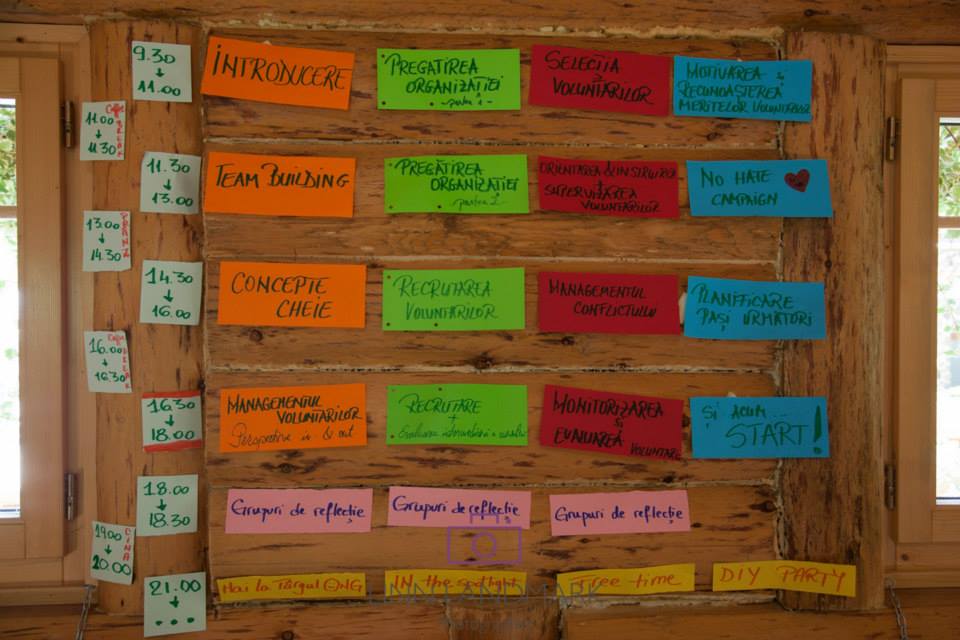 9.30
11.00
INTRODUCERE
PREGĂTIREA
ORGANIZAȚIEI
- partea 1 -
SELECȚIA
VOLUNTARILOR
MOTIVAREA și
RECUNOAȘTEREA
MERITELOR VOLUNTARILOR
11.00
11.30
Coffee
BREAK
11.30
13.00
TEAM BUILDING
PREGĂTIREA
ORGANIZAȚIEI
- partea 2 -
ORIENTAREA & INSTRUIREA
+
SUPERVIZAREA
VOLUNTARILOR
NO HATE
CAMPAIGN
13.00
14.30
PRANZ
14.30
16.00
CONCEPTE
CHEIE
RECRUTAREA
VOLUNTARILOR
MANAGEMENTUL
CONFLICTULUI
PLANIFICARE
PAȘI URMĂTORI
16.00
16.30
Coffee
BREAK
16.30
18.00
MANAGEMENTUL
VOLUNTARILOR
Perspective in & out
RECRUTARE
+
MONITORIZAREA
și
EVALUAREA
VOLUNTARI
ȘI ACUM ...
START!
18.00
18.30
Grupuri de reflecție
Grupuri de reflecție
Grupuri de reflecție
19.00
20.00
CINA
21.00
...
Hai la Târgul ONG
IN the spotlight
Free time
DIY PARTY
LINN LANDMARK
Photography